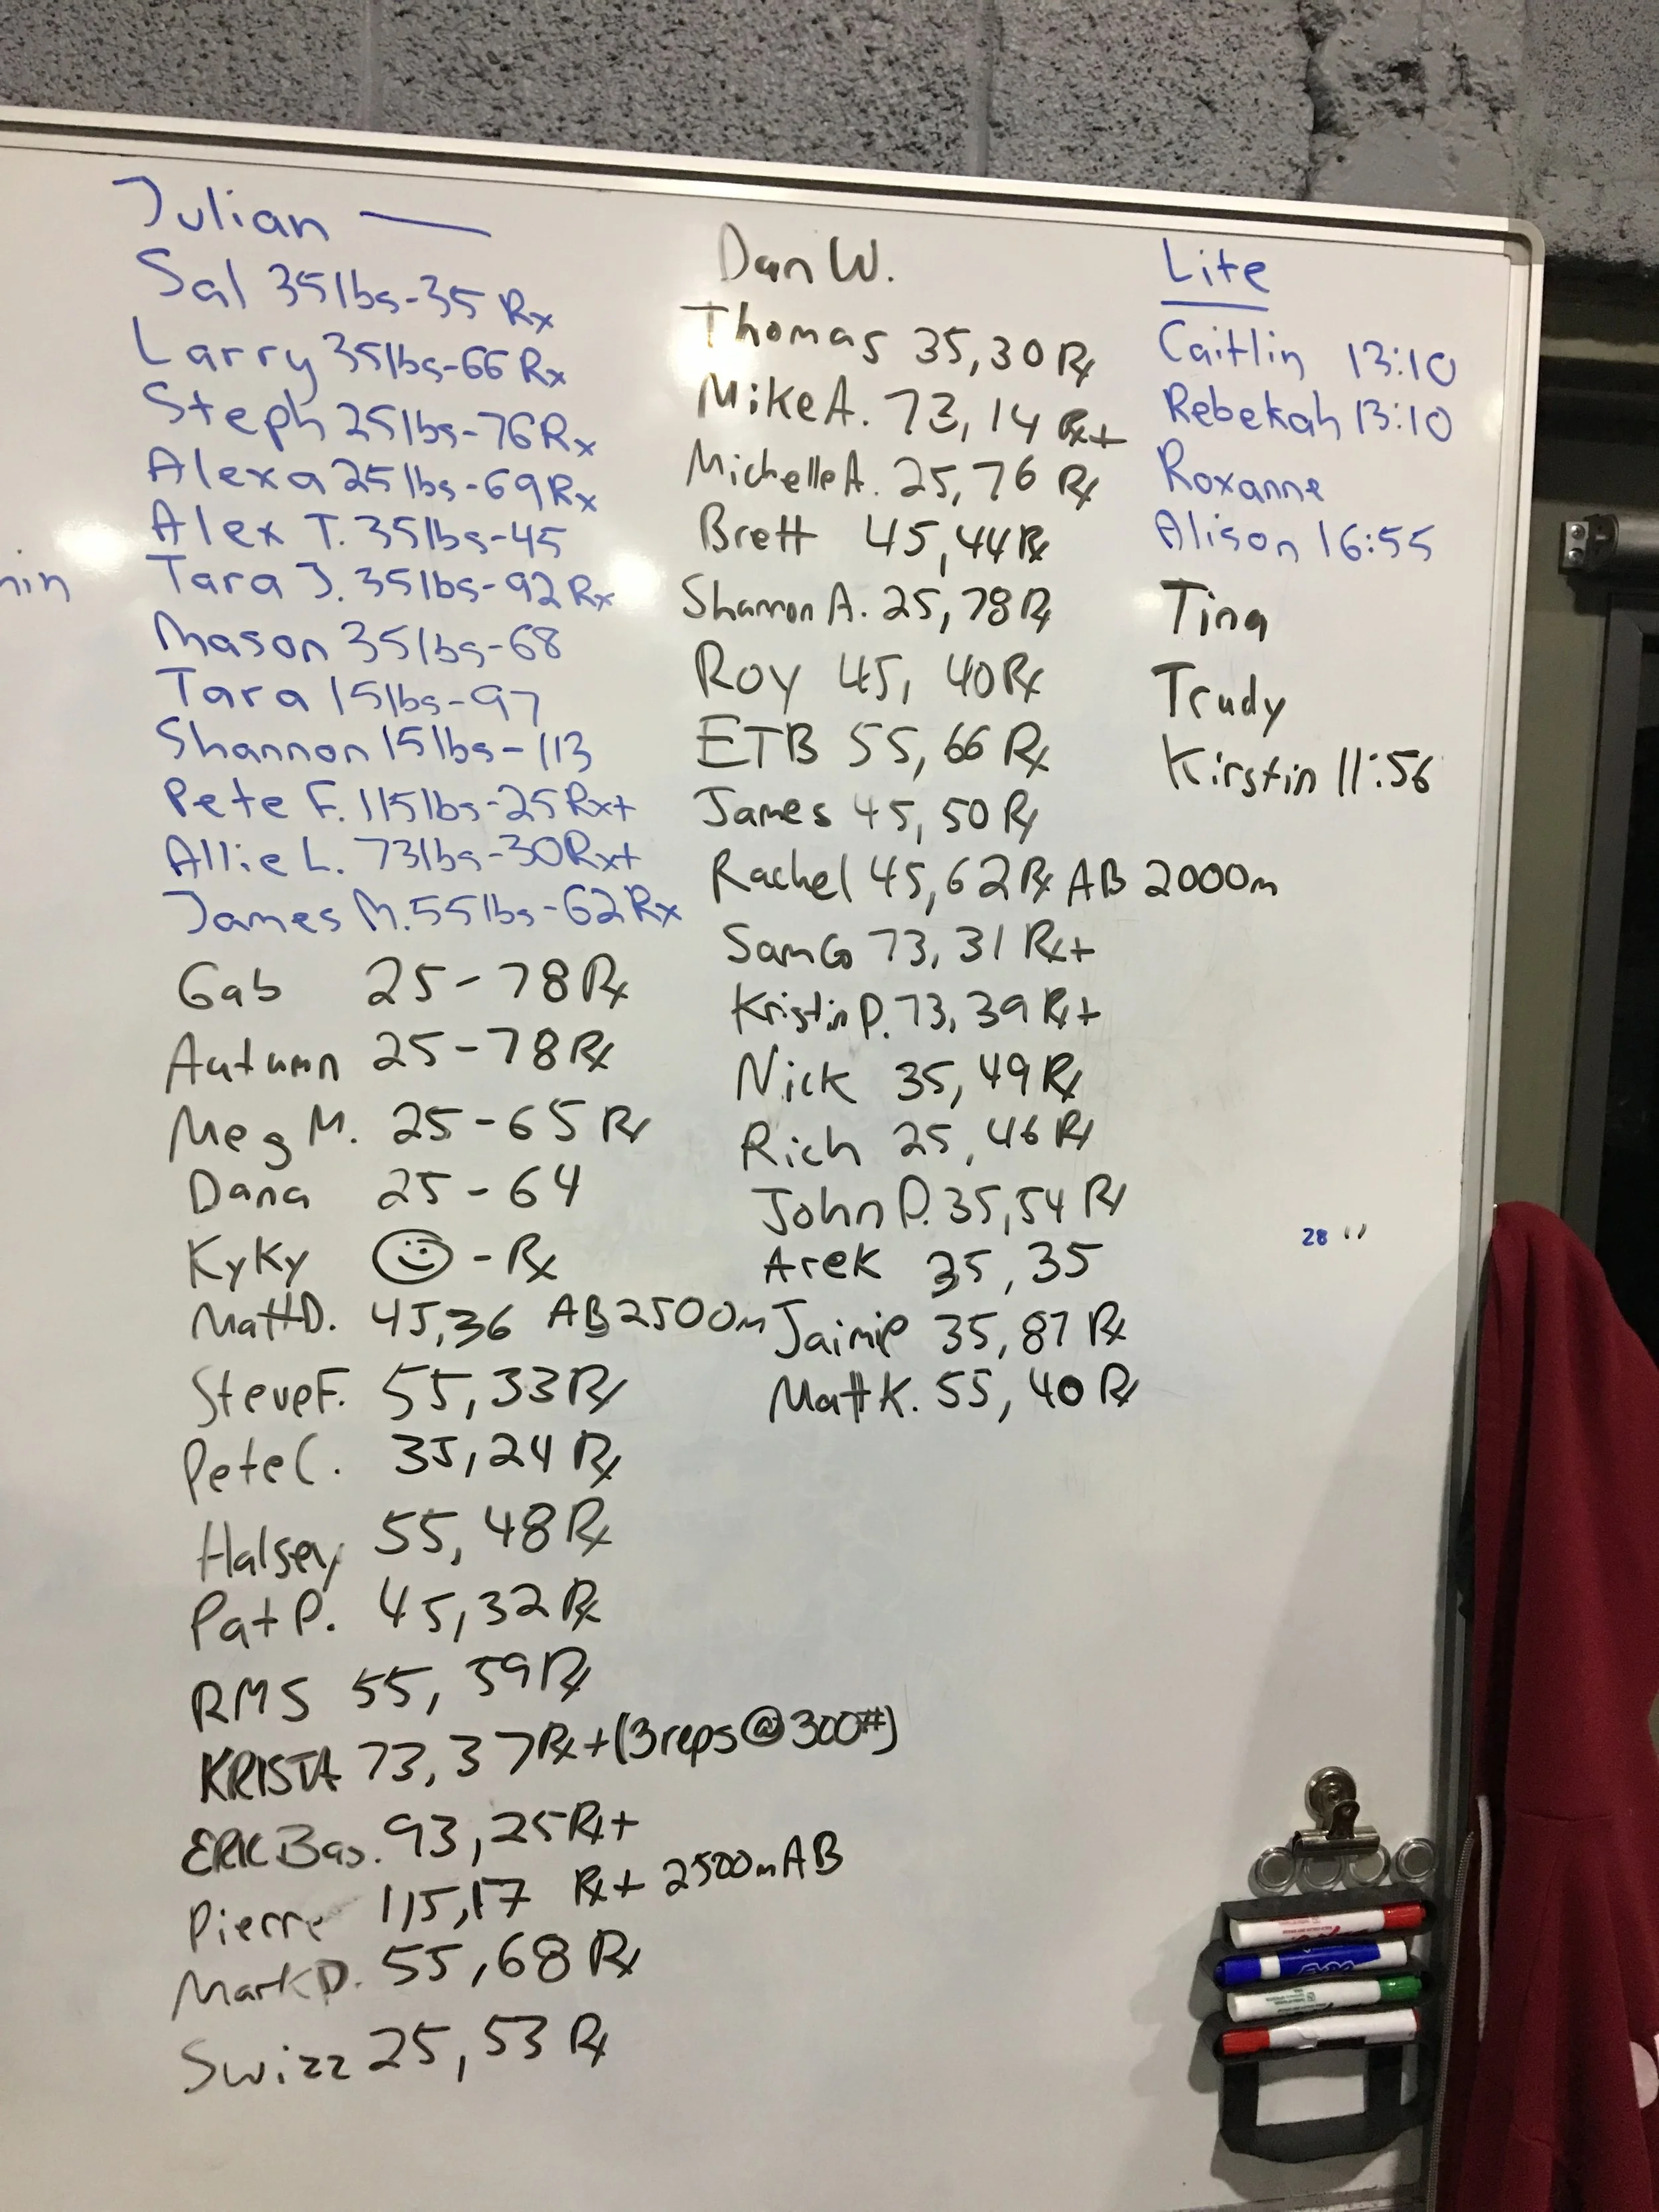 Julian —
Sal 35lbs-35 Rx
Larry 35lbs-66 Rx
Steph 25lbs-76Rx
Alexa 25lbs-69Rx
Alex T. 35lbs-45
Tara J. 35lbs-92Rx
Mason 35lbs-68
Tara 15lbs-97
Shannon 15lbs-113
Pete F. 115lbs-25Rx+
Allie L. 73lbs-30Rx+
James M. 55lbs-62Rx
Gab 25-78Rx
Autumn 25-78Rx
Meg M. 25-65 Rx
Dana 25-64
KyKy ☺ - Rx
Matt D. 45,36 AB 2500m
Steve F. 55,33Rx
Pete C. 35,24 Rx
Halsey 55,48Rx
Pat P. 45,32Rx
RMS 55, 59Rx
KRISTA 73,37Rx+(3reps@300#)
ERIC Bas. 93,25Rx+
Pierre 115,17 Rx+ 2500mAB
Mark D. 55,68 Rx
Swizz 25,53 Rx
Dan W.
Thomas 35,30 Rx
Mike A. 73,14 Rx+
Michelle A. 25,76 Rx
Brett 45,44Rx
Shannon A. 25,78Rx
Roy 45, 40Rx
ETB 55,66 Rx
James 45,50Rx
Rachel 45,62Rx AB 2000m
Sam Go 73,31 Rx+
Kristin P. 73,39 Rx+
Nick 35,49Rx
Rich 25,46Rx
John P. 35,54 Rx
Arek 35,35
Jaimie 35,87 Rx
Matt K. 55,40 Rx
Lite
Caitlin 13:10
Rebekah 13:10
Roxanne
Alison 16:55
Tina
Trudy
Kirstin 11:56
28